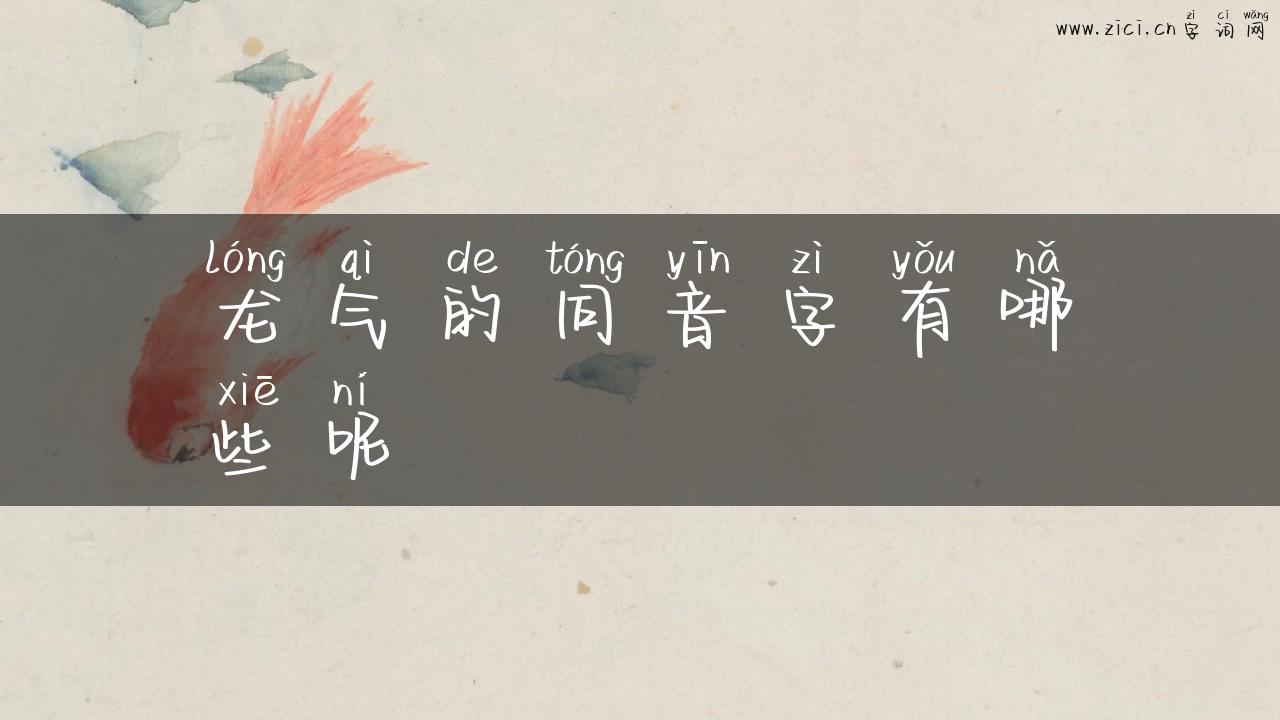 www.zici.cn 字词网
zì cí wǎng
lóng qì de tóng yīn zì yǒu nǎ
龙气的同音字有哪
xiē ní
些呢